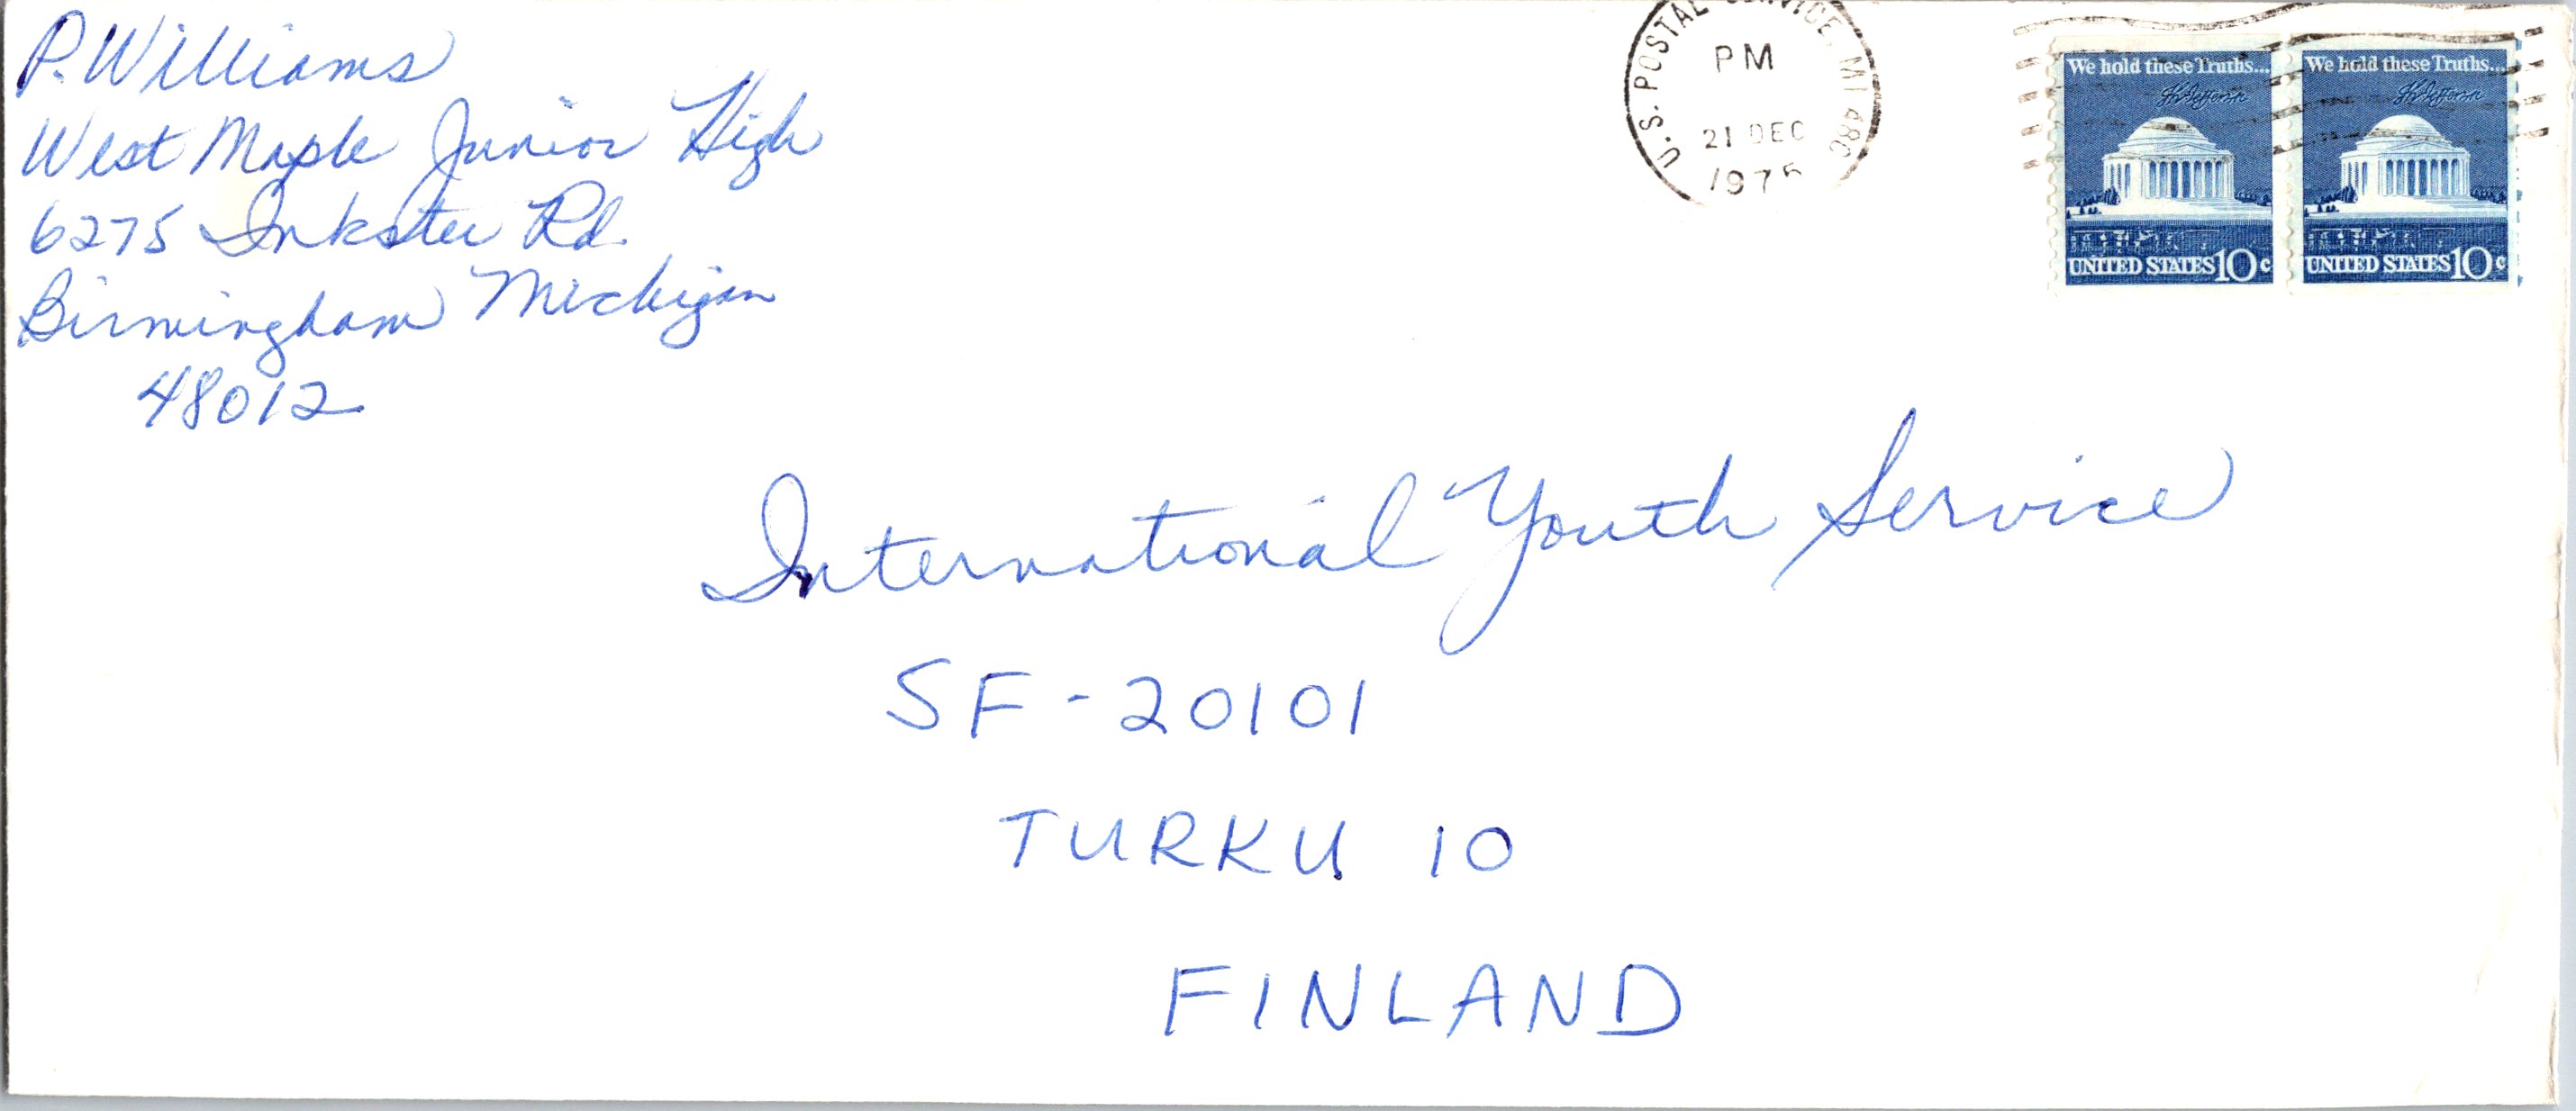 P. Williams
West Maple Junior High
6275 Inkster Rd.
Birmingham Michigan
48012
U.S. POSTAL SERVICE, MI 480
PM
21 DEC
We hold these Truths...
Th Jefferson
UNITED STATES 10c
We hold these Truths...
Th Jefferson
UNITED STATES 10c
International Youth Service
SF-20101
TURKU 10
FINLAND